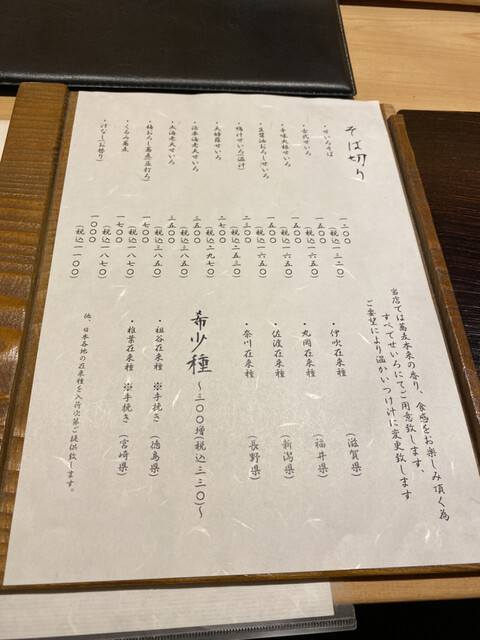 そば切り
・せいろそば 一二〇〇 (税込一三二〇)
・古代せいろ 一五〇〇 (税込一六五〇)
・辛味大根せいろ 一五〇〇 (税込一六五〇)
・生醤油おろしせいろ 一五〇〇 (税込一六五〇)
・鴨汁せいろ(温汁) 二三〇〇 (税込二五三〇)
・天婦羅せいろ 二七〇〇 (税込二九七〇)
・活車海老天せいろ 三五〇〇 (税込三八五〇)
・大海老天せいろ 三五〇〇 (税込三八五〇)
・梅おろし蕎麦 一七〇〇 (税込一八七〇)
・くるみ蕎麦 一七〇〇 (税込一八七〇)
・汁なし(お替り) 一〇〇〇 (税込一一〇〇)
当店では蕎麦本来の香り、食感をお楽しみ頂く為
すべてせいろにてご用意致します、
ご要望により温かいつけ汁に変更致します
・伊吹在来種 (滋賀県)
・丸岡在来種 (福井県)
・佐渡在来種 (新潟県)
・奈川在来種 (長野県)
希少種 ～三〇〇増(税込三三〇)～
・祖谷在来種 ※手挽き (徳島県)
・椎葉在来種 ※手挽き (宮崎県)
他、日本各地の在来種を入荷次第ご提供致します。